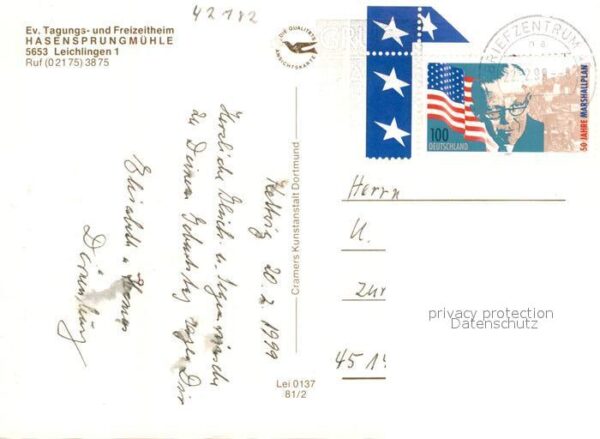 42182
Ev. Tagungs- und Freizeitheim
HASENSPRUNGMÜHLE
5653 Leichlingen 1
Ruf (02175) 3875
DIE QUALITÄTS
ANSICHTSKARTE
BRIEFZENTRUM
100
DEUTSCHLAND
50 JAHRE MARSHALLPLAN
Kettwig 20.2.1999
Herzliche Glück- u. Segenswünsche
zu Deinem Geburtstag sagen Dir
Elisabeth u. Thomas
Cramers Kunstanstalt Dortmund
Lei 0137
81/2
Herrn
U.
Zur
451
privacy protection
Datenschutz